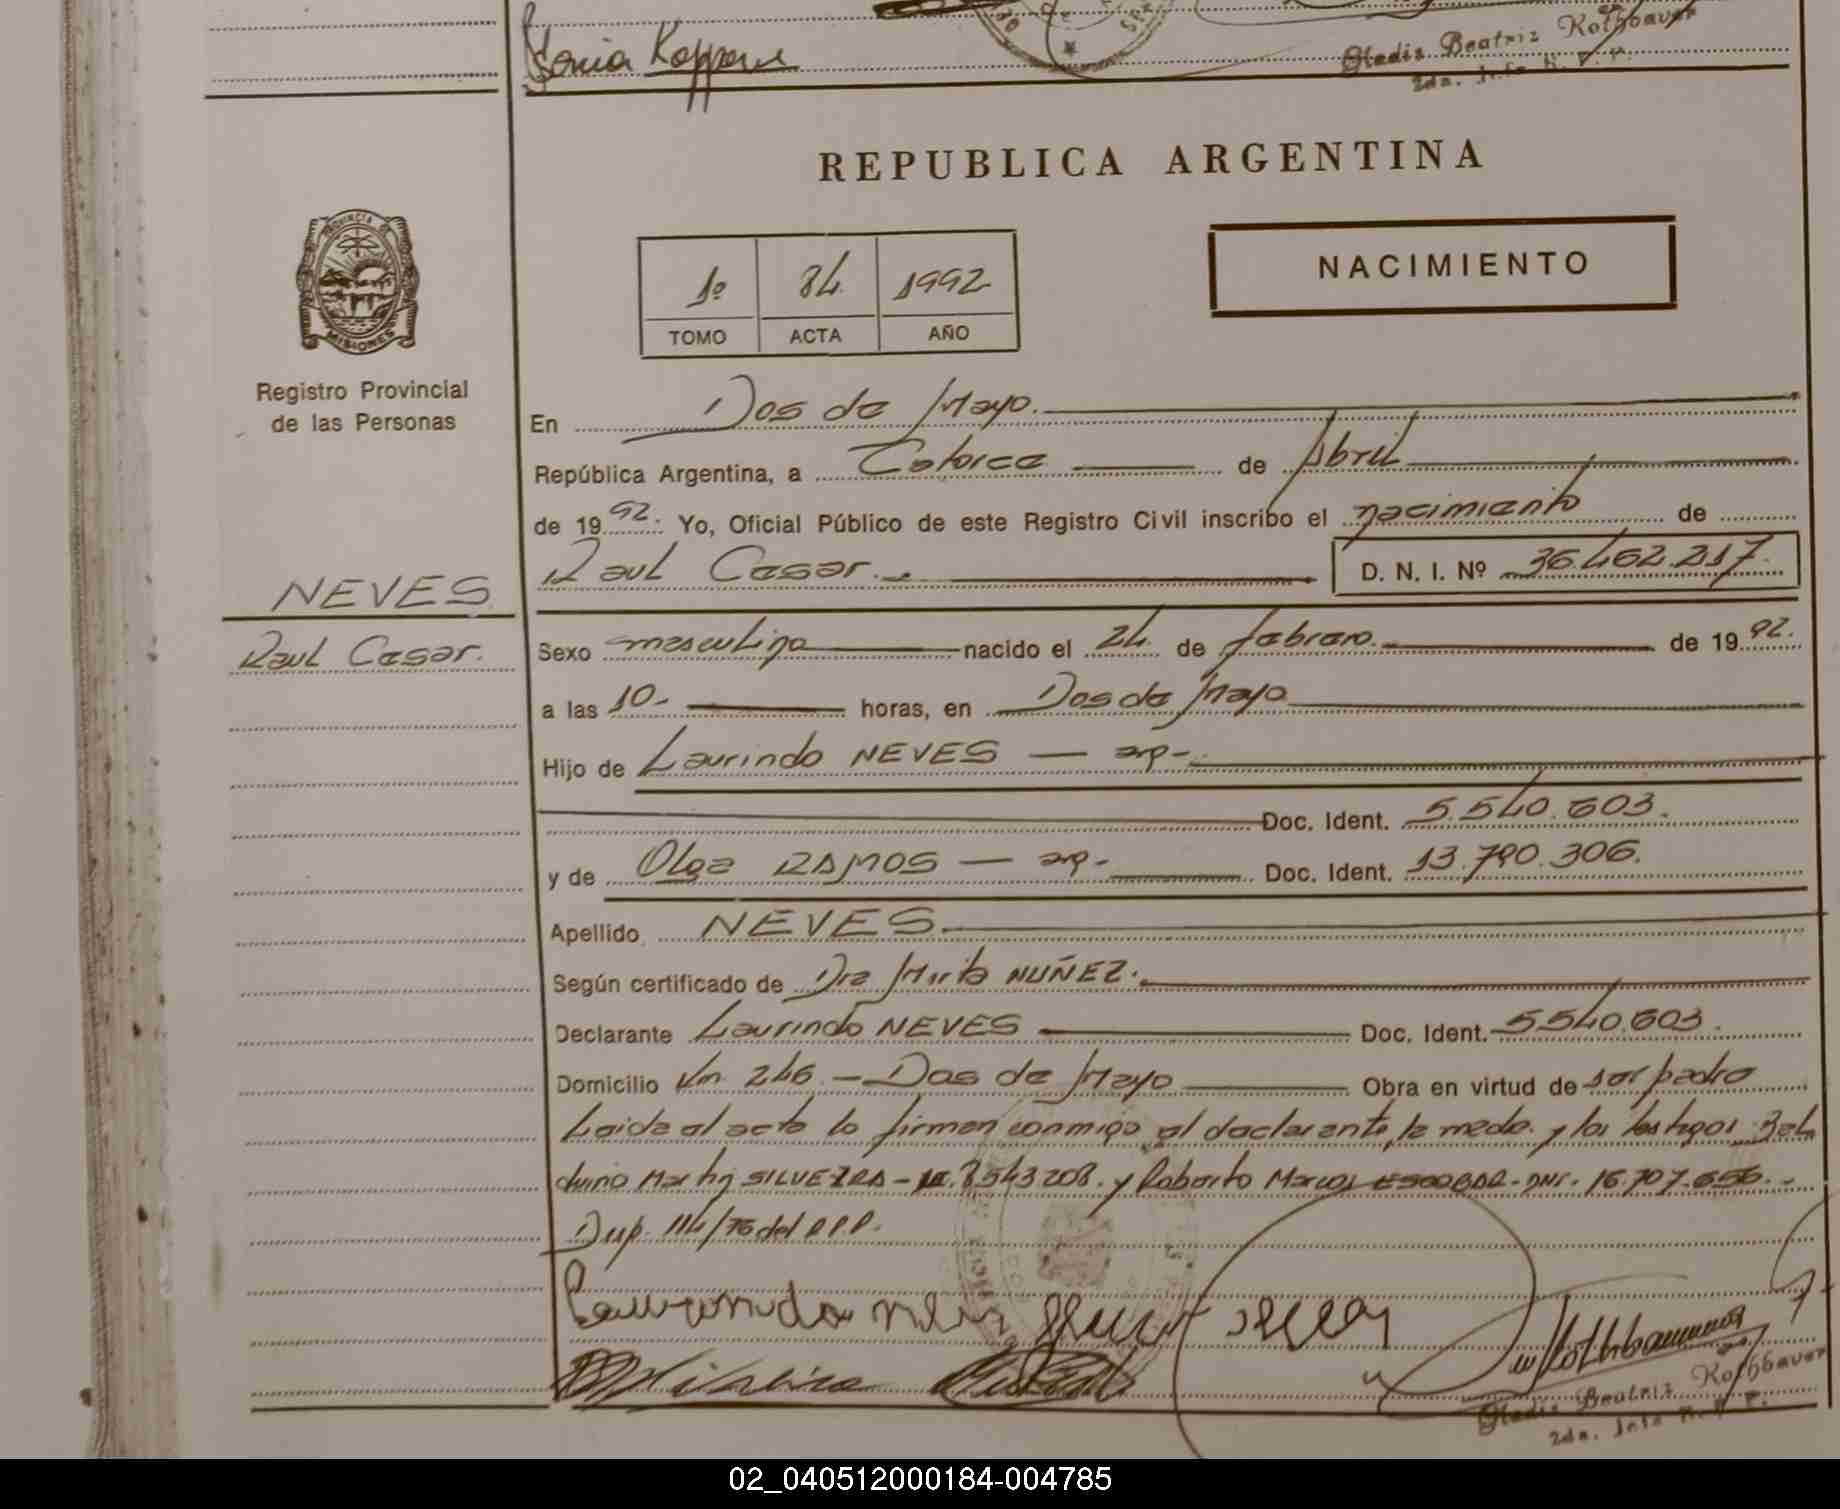 Sonia Koppere
Gladis Beatriz Kothbaver
2da. Jefa R. P. P.
REPUBLICA ARGENTINA
PROVINCIA DE
MISIONES
1º 84. 1992
TOMO ACTA AÑO
NACIMIENTO
Registro Provincial
de las Personas
En Dos de Mayo.
República Argentina, a Catorce de Abril
de 1992. Yo, Oficial Público de este Registro Civil inscribo el nacimiento de
Raul Cesar. D. N. I. Nº 36.462.217.
NEVES
Raul Cesar.
Sexo masculino nacido el 24. de febrero. de 1992.
a las 10- horas, en Dos de Mayo
Hijo de Laurindo NEVES — arg-
Doc. Ident. 5.540.603.
y de Olga RAMOS — arg- Doc. Ident. 13.790.306.
Apellido NEVES.
Según certificado de Dra Mirta NUÑEZ.
Declarante Laurindo NEVES Doc. Ident. 5.540.603.
Domicilio Km 246. — Dos de Mayo Obra en virtud de ser padre
Leida el acta la firman conmigo el declarante, la madre y los testigos Bal
duino Martin SILVEIRA - LE. 8.543.208. y Roberto Marcos ESCOBAR - DNI. 16.707.656.-
Disp. 114/76 del RPP.
Gladis Beatriz Kothbaver
2da. Jefa R. P. P.
02_040512000184-004785